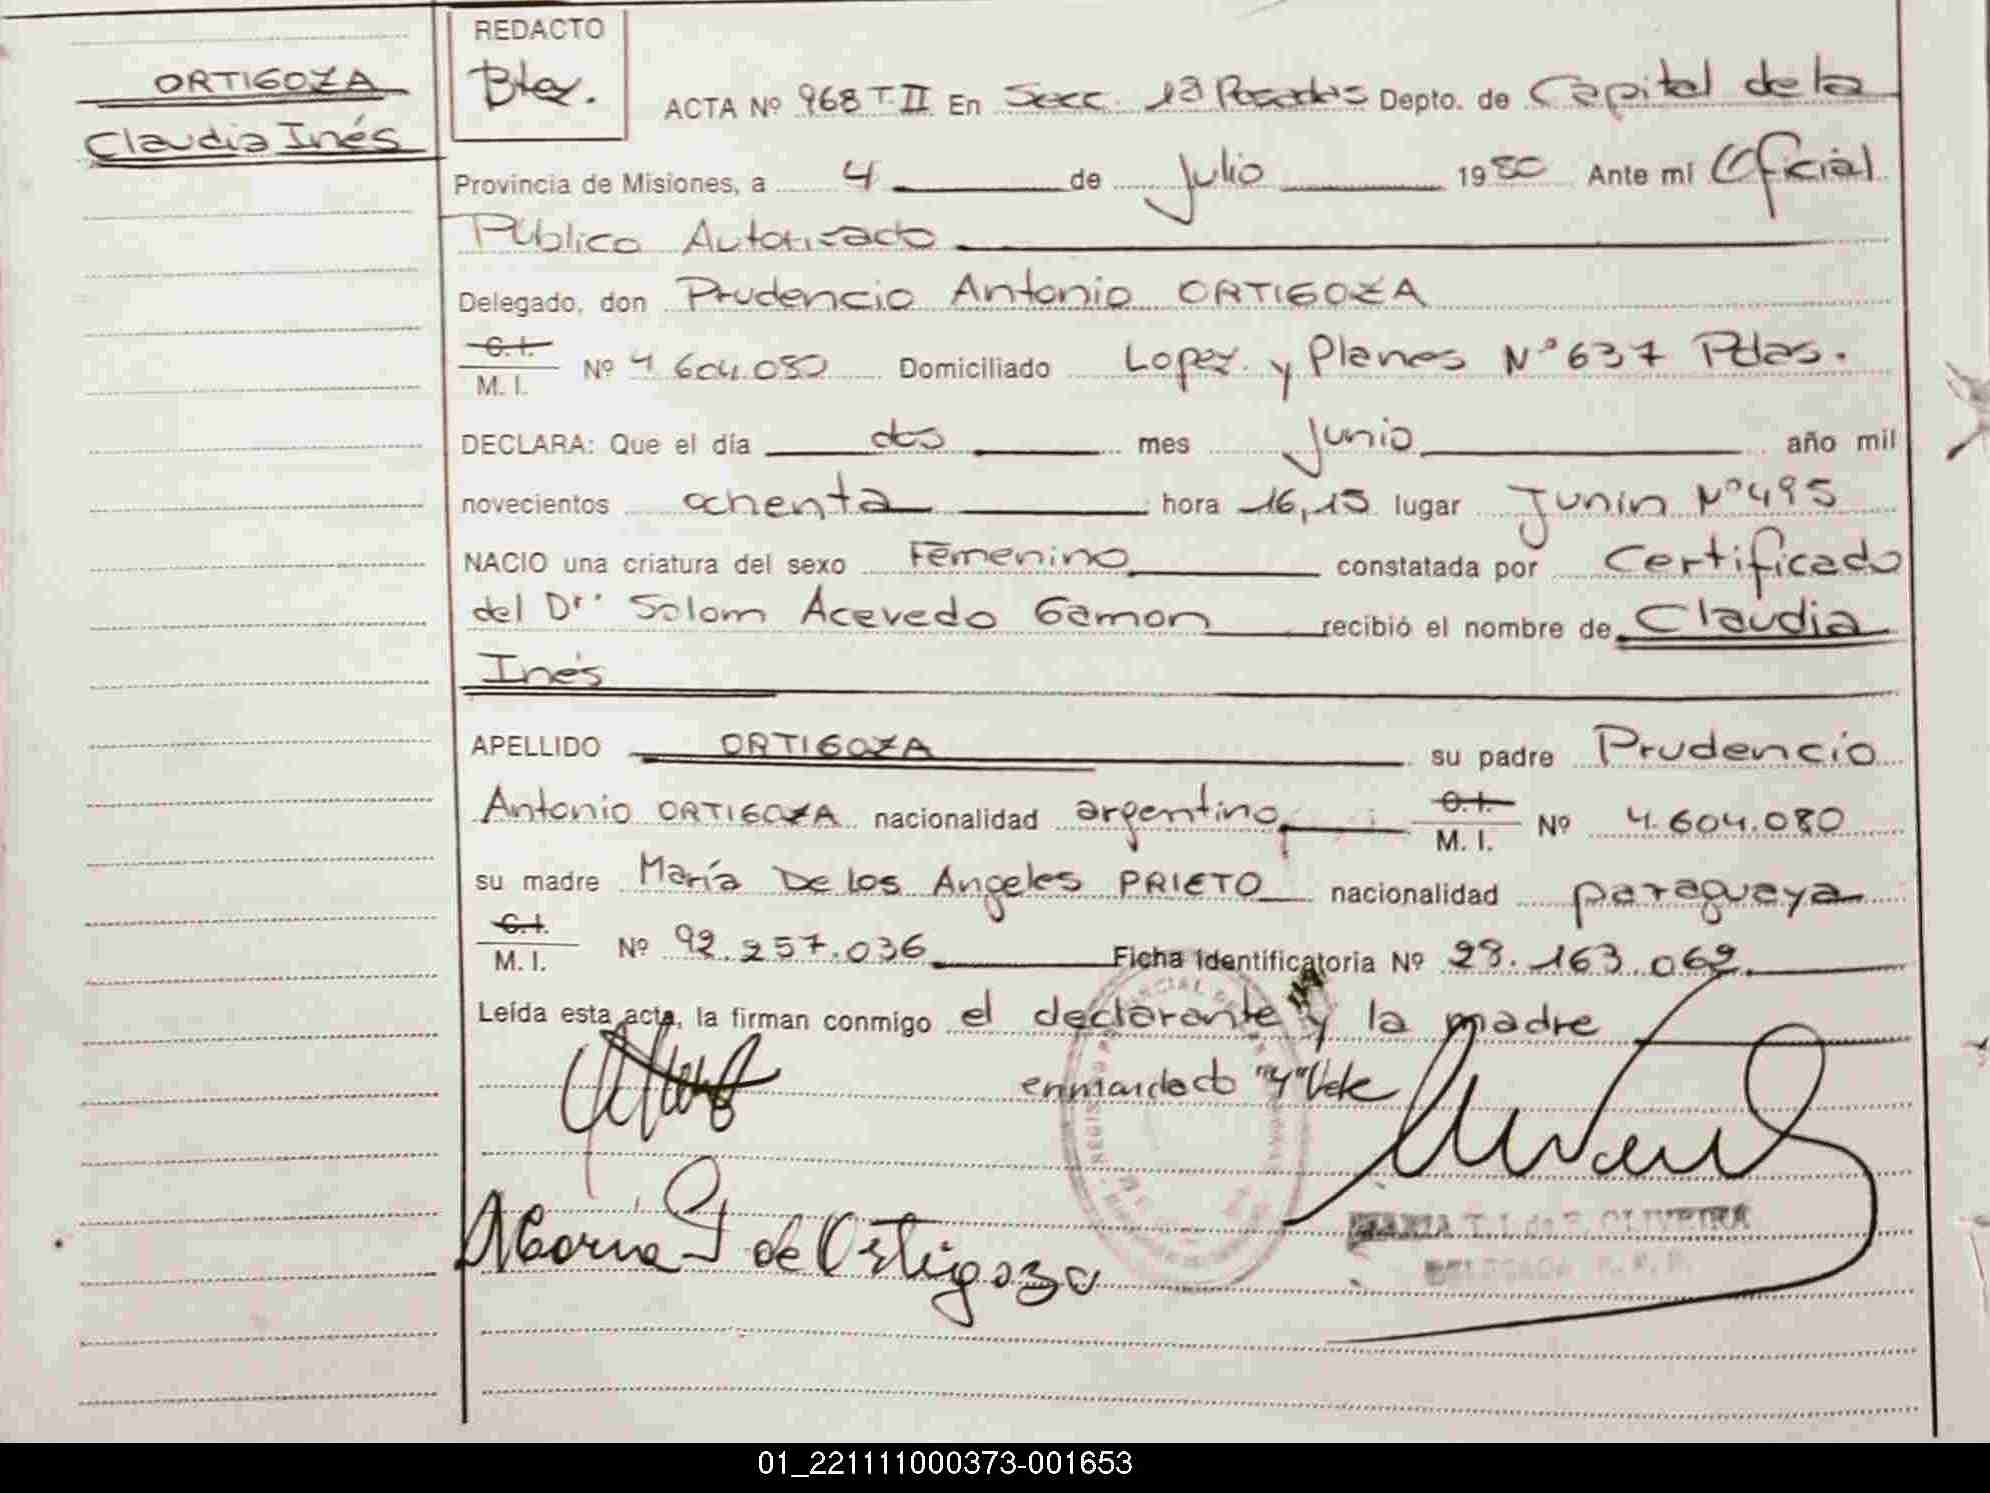 ORTIGOZA
Claudia Inés
REDACTO
ACTA Nº 968 T.II En Secc. 1ª Posadas Depto. de Capital de la
Provincia de Misiones, a 4 de Julio 1980 Ante mi Oficial
Público Autorizado
Delegado, don Prudencio Antonio ORTIGOZA
C.I.
M. I. Nº 4.604.080 Domiciliado Lopez y Planes Nº 637 Pdas.
DECLARA: Que el día dos mes Junio año mil
novecientos ochenta hora 16,15 lugar Junin Nº 495
NACIO una criatura del sexo Femenino constatada por Certificado
del Dr. Solom Acevedo Gamon recibió el nombre de Claudia
Inés
APELLIDO ORTIGOZA su padre Prudencio
Antonio ORTIGOZA nacionalidad argentino C.I.
M. I. Nº 4.604.080
su madre María De los Angeles PRIETO nacionalidad paraguaya
C.I.
M. I. Nº 92.257.036 Ficha Identificatoria Nº 28.163.062
Leída esta acta, la firman conmigo el declarante y la madre
enmendado "y" Vale
María P de Ortigoza
MARIA T. I. de F. OLIVEIRA
DELEGADA R. P. P.
01_221111000373-001653